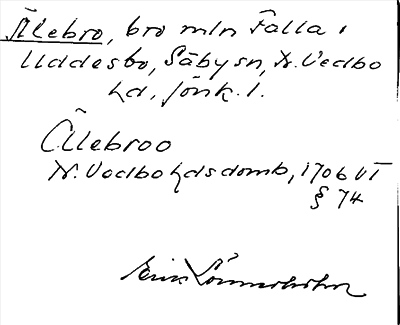 Ålebro, bro mln Falla i
Uddesbo, Säby sn, N. Vedbo
hd, Jönk. l.
Ålebroo
N. Vedbo hdsdomb, 1706 VT
§ 74
Erik